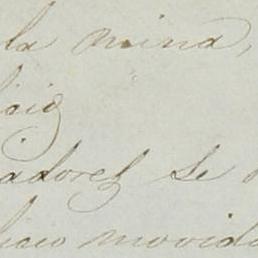 la mina,
icio
adores se
licio movido